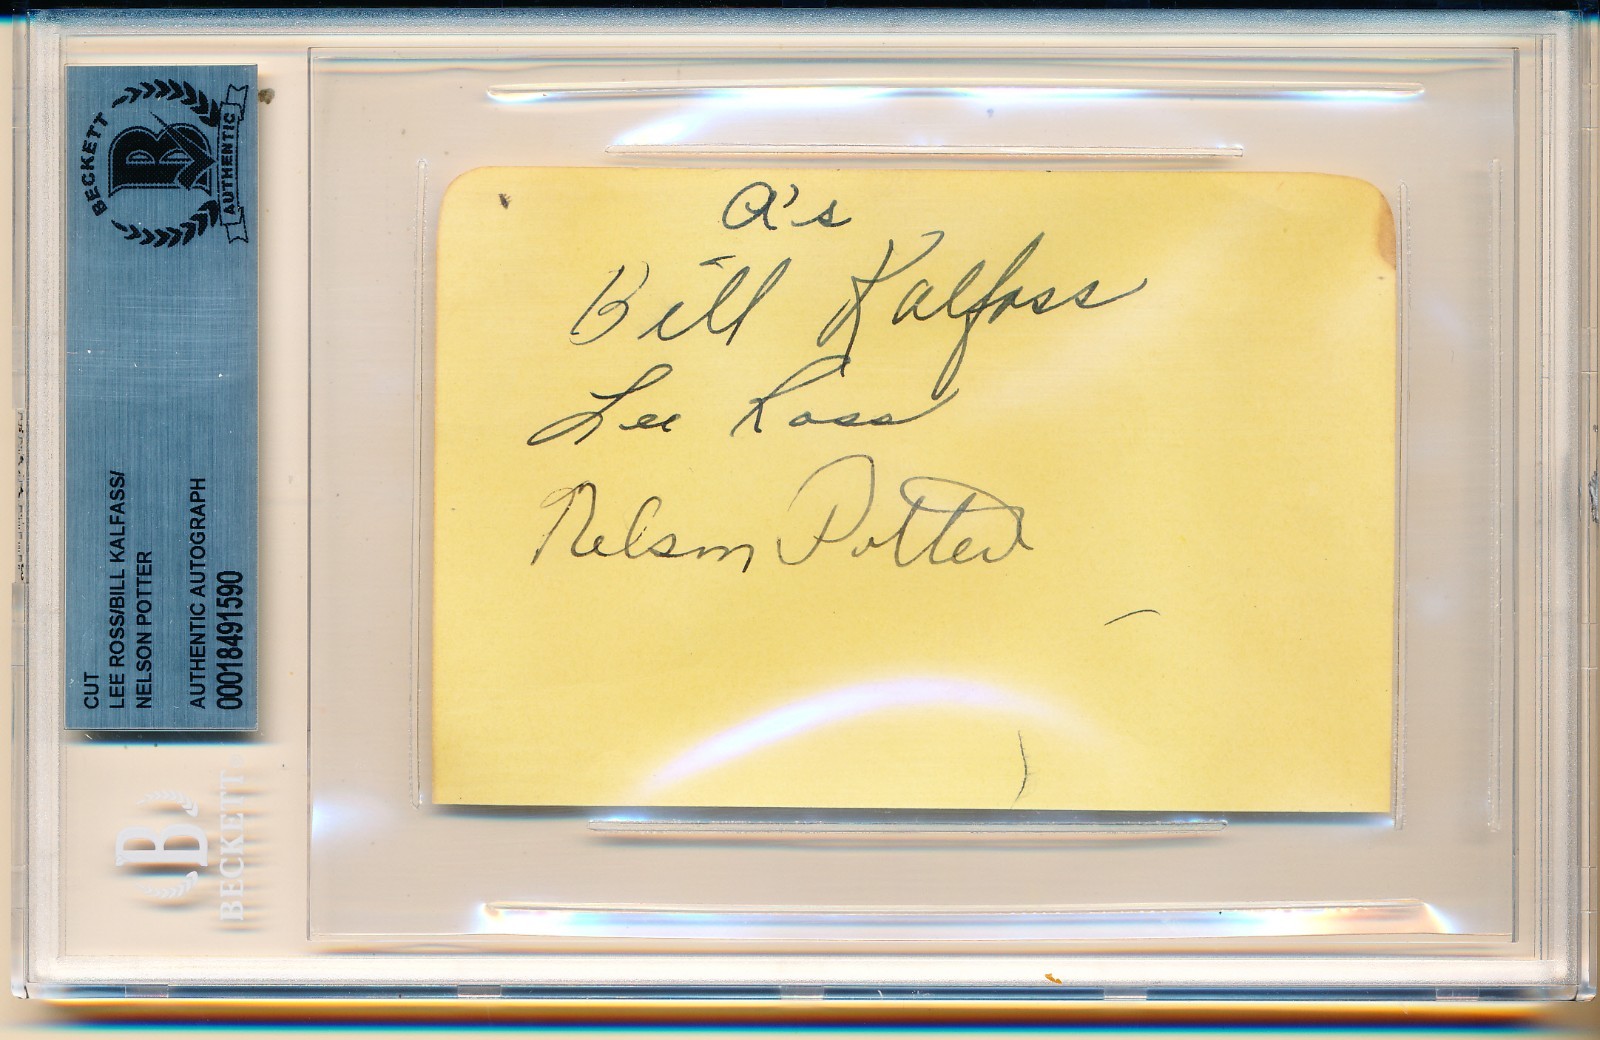 BECKETT
B
AUTHENTIC
CUT
LEE ROSS/BILL KALFASS/
NELSON POTTER
AUTHENTIC AUTOGRAPH
00018491590
B
BECKETT
A's
Bill Kalfass
Lee Ross
Nelson Potter